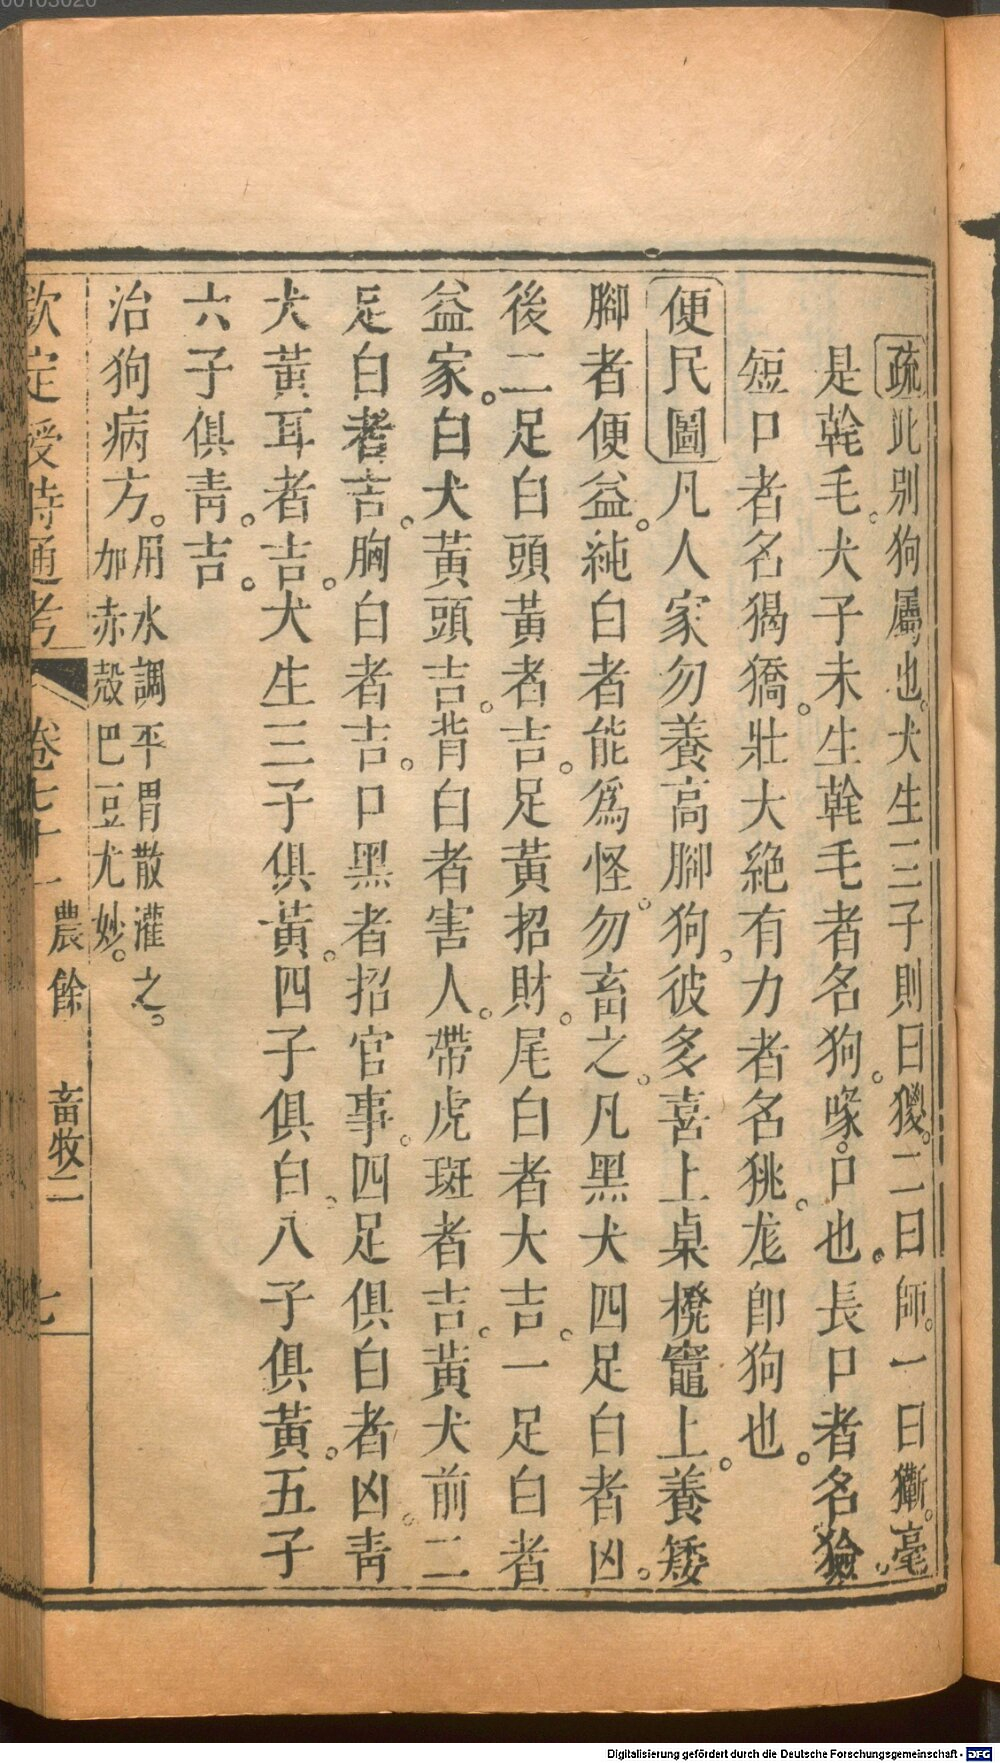 疏此別狗屬也。犬生三子則曰猣。二曰師。一曰獑。毫
是𠦝毛。犬子未生𠦝毛者名狗。喙。口也。長口者名獫。
短口者名猲獢。壯大絕有力者名狣。尨卽狗也。
便民圖凡人家勿養高腳狗。彼多喜上桌櫈竈上。養矮
腳者便益。純白者能爲怪。勿畜之。凡黑犬四足白者凶。
後二足白頭黃者吉。足黃招財。尾白者大吉。一足白者
益家。白犬黃頭吉。背白者害人。帶虎斑者吉。黃犬前二
足白者吉。胸白者吉。口黑者招官事。四足俱白者凶。靑
犬黃耳者吉。犬生三子俱黃。四子俱白。八子俱黃。五子
六子俱靑。吉。
治狗病方。用水調平胃散灌之。
加赤殼巴豆尤妙。
欽定授時通考 卷七十一 農餘 畜牧二 七
00103020
Digitalisierung gefördert durch die Deutsche Forschungsgemeinschaft - DFG